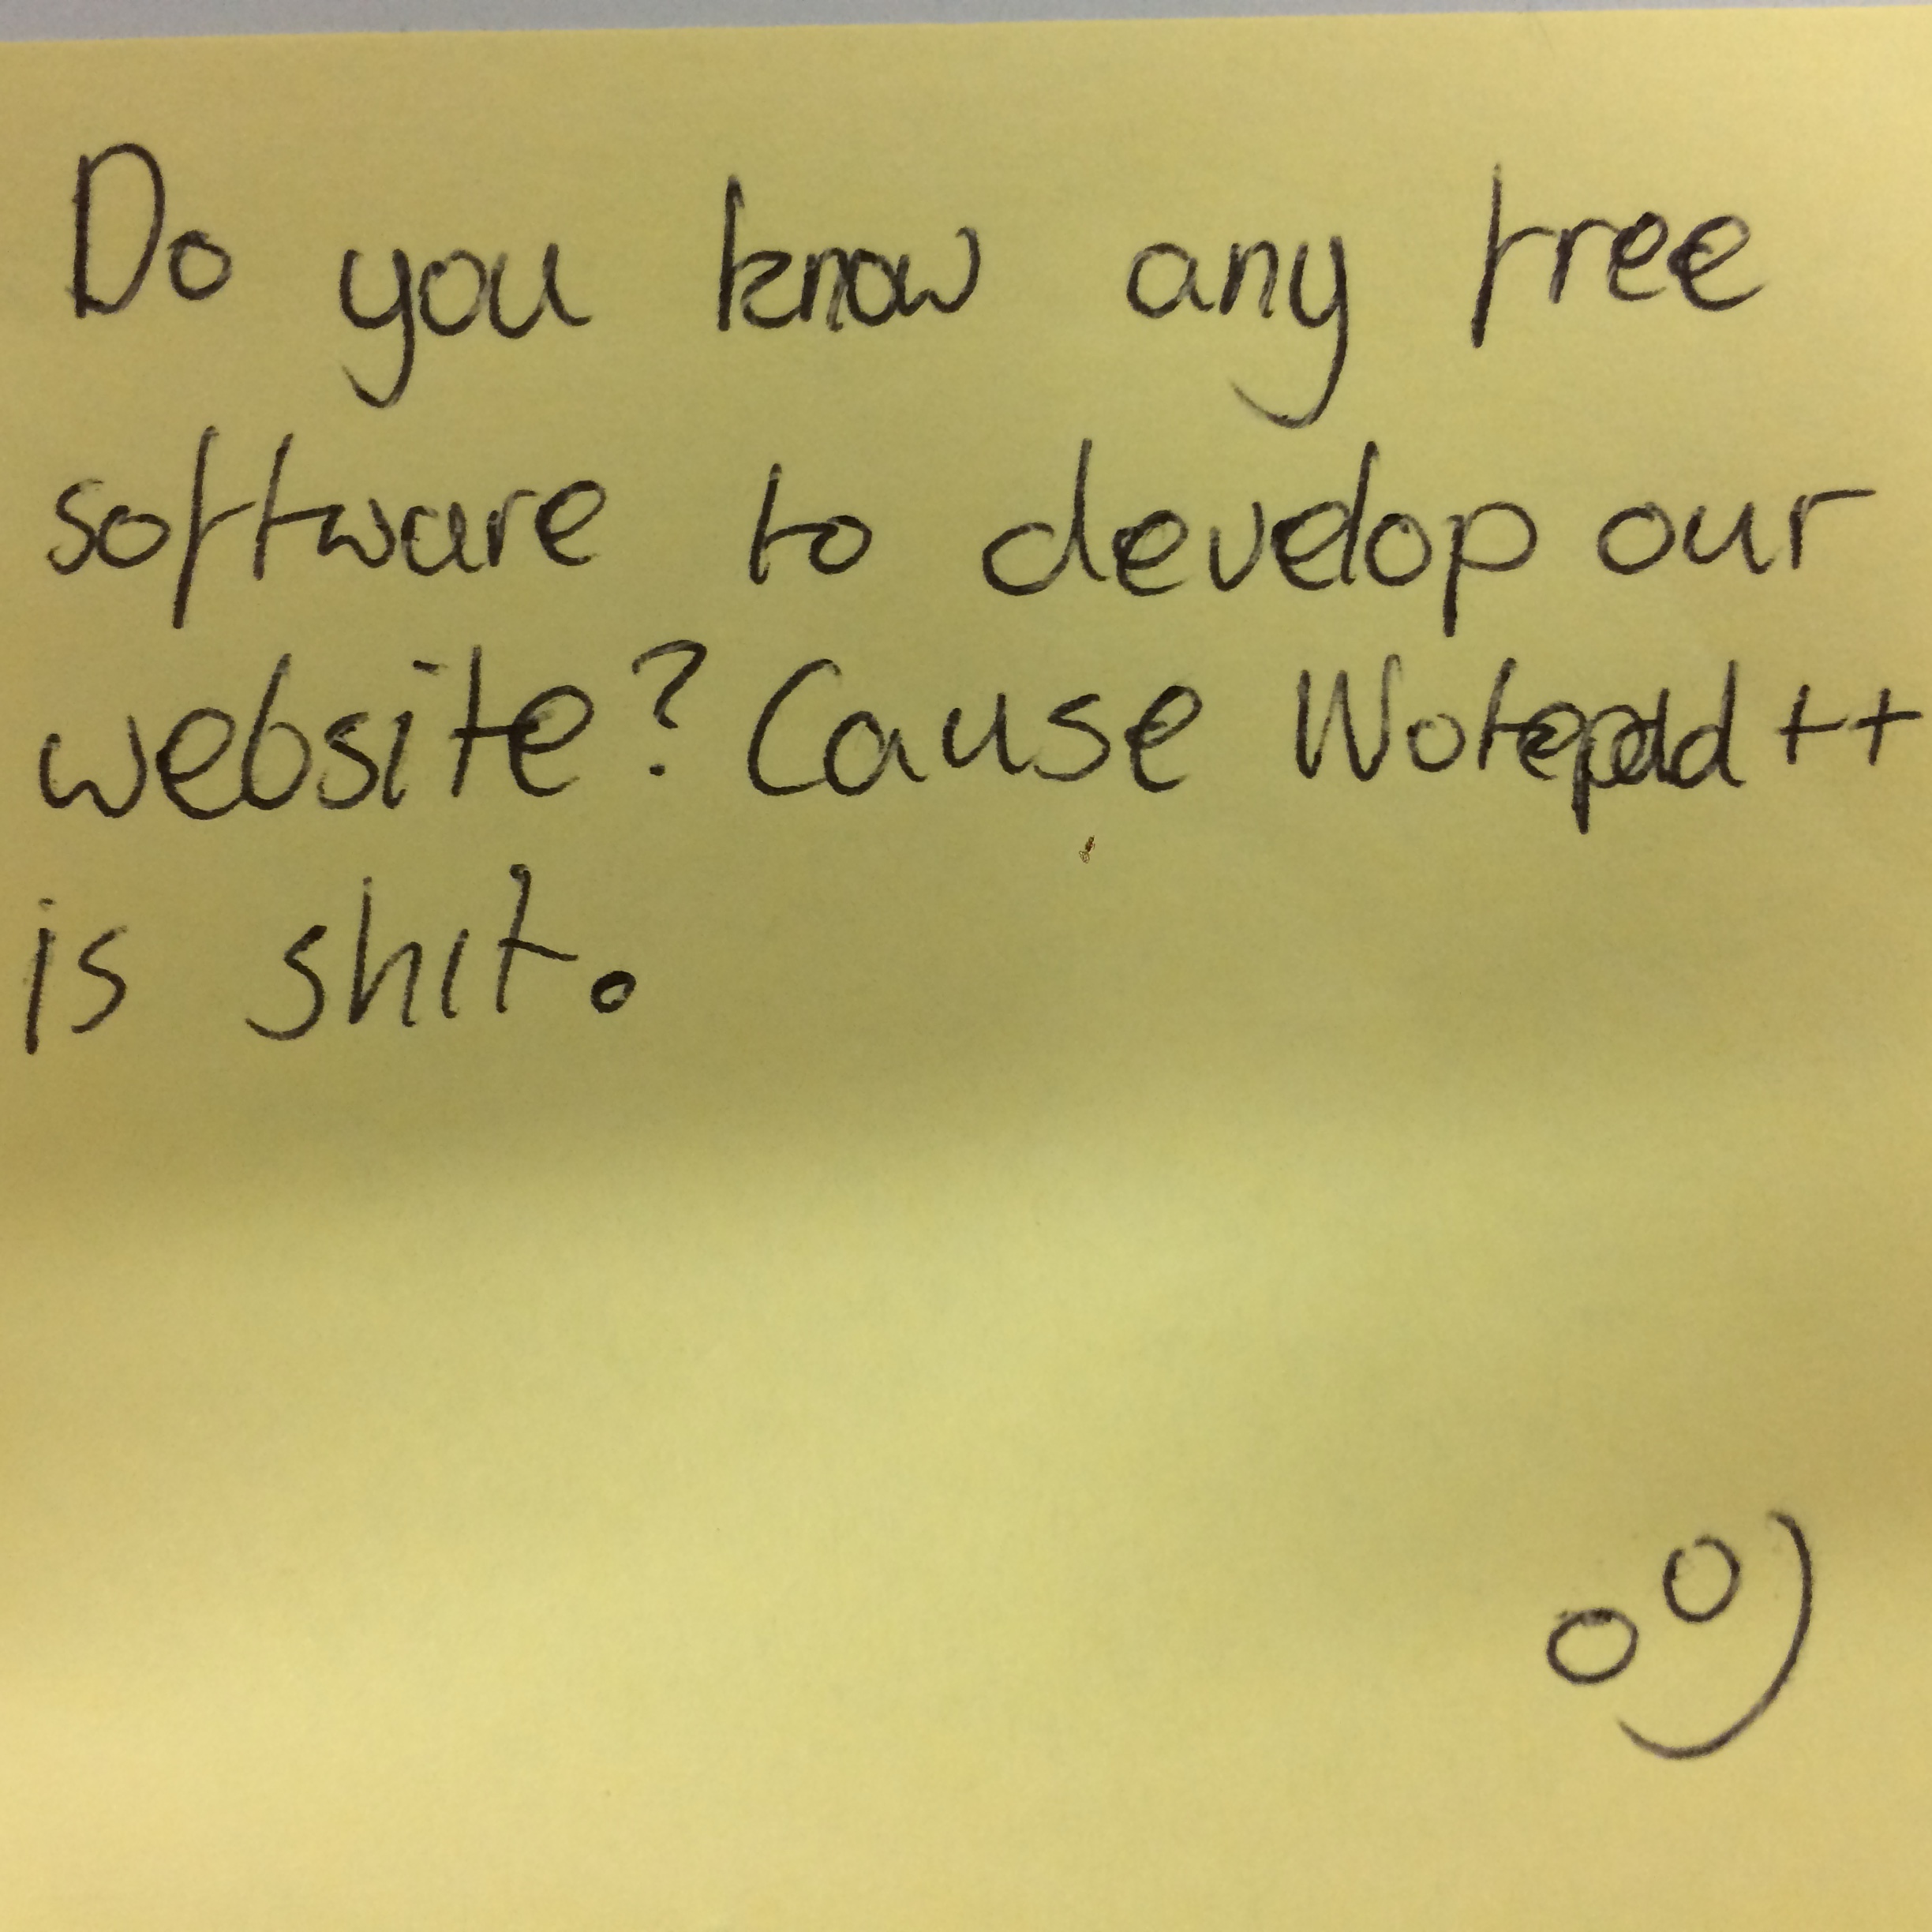 Do you know any free
software to develop our
website? Cause Notepad ++
is shit.